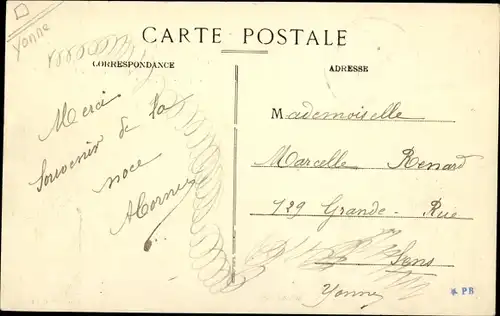 Yonne
CARTE POSTALE
CORRESPONDANCE
ADRESSE
Merci
Souvenir de la
noce
Mademoiselle
Marcelle Renard
129 Grande-Rue
Sens
Yonne
PB